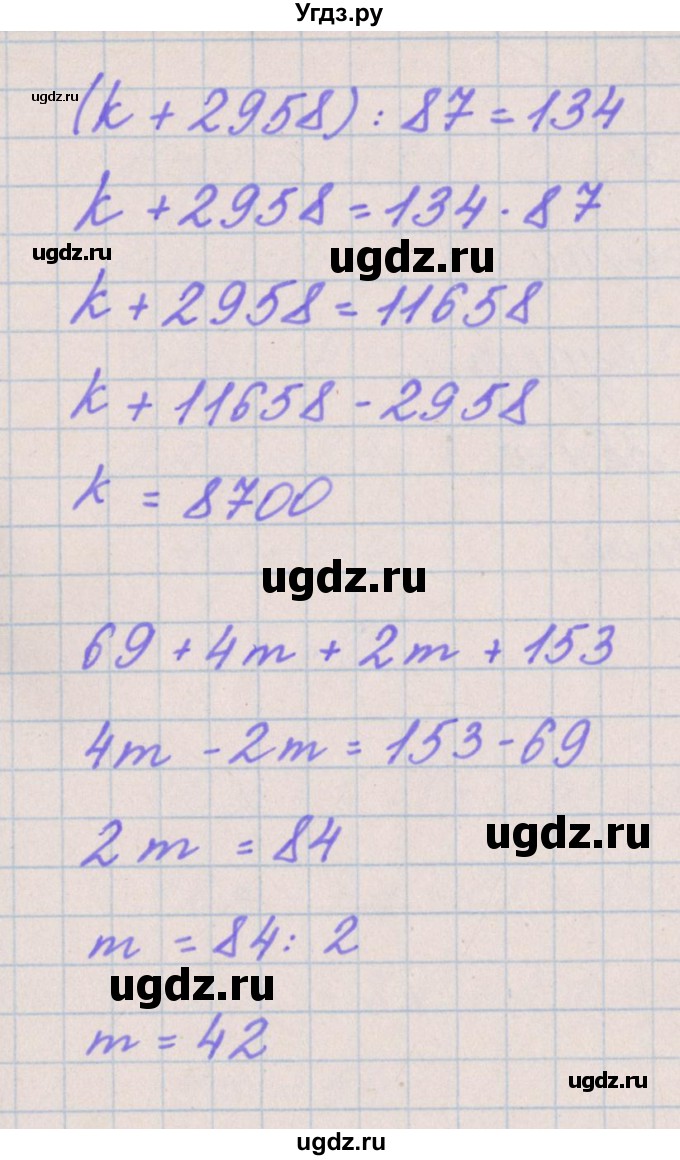 Угдз.ру
ugdz.ru
(k + 2958) : 87 = 134
k + 2958 = 134 · 87
ugdz.ru
ugdz.ru
k + 2958 = 11658
k + 11658 - 2958
k = 8700
ugdz.ru
69 + 4m + 2m + 153
4m - 2m = 153 - 69
ugdz.ru
2m = 84
m = 84 : 2
ugdz.ru
m = 42
ugdz.ru
ugdz.ru